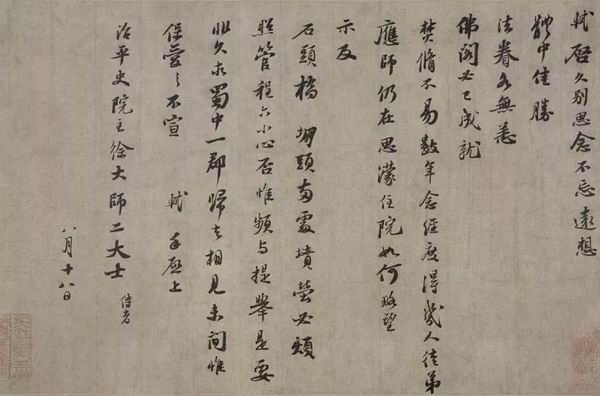 軾啓久別思念不忘遠想
體中佳勝
法眷各無恙
佛閣必已成就
焚脩不易數年念經度得幾人徒弟
應師仍在思濛住院如何略望
示及
石頭橋堋頭兩處墳塋必煩
照管程六小心否惟頻与提舉是要
非久求蜀中一郡歸去相見未間惟
保愛之不宣　軾手啓上
治平史院主徐大師二大士侍者
八月十八日